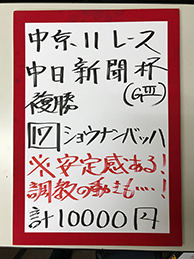 中京11レース
中日新聞杯
(GIII)
複勝
17 ショウナンバッハ
※安定感ある!
調教の動きも…!
計10000円